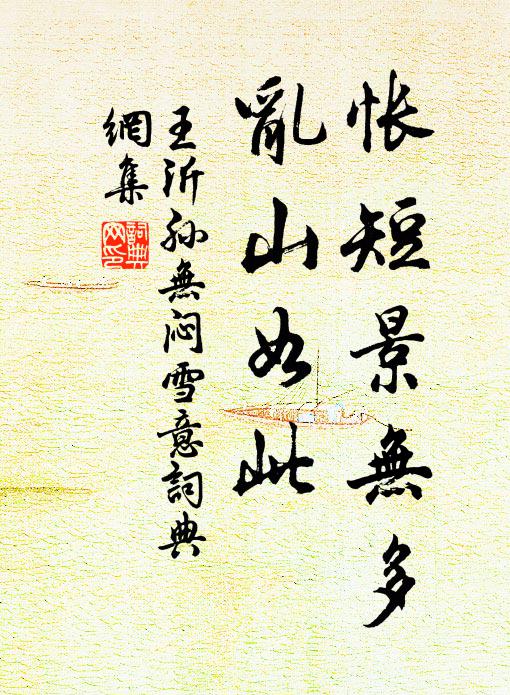 悵短景無多
亂山如此
王沂孫無悶雪意詞典
網集
詞典網印